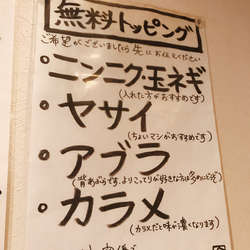 無料トッピング
ご希望がございましたら先にお伝えください
・ニンニク・玉ネギ
(入れた方がおすすめです)
・ヤサイ
(ちょいマシがおすすめです)
・アブラ
(背あぶらです。よりこってりが好きな方は多めにどうぞ)
・カラメ
(カラメだと味が濃くなります)